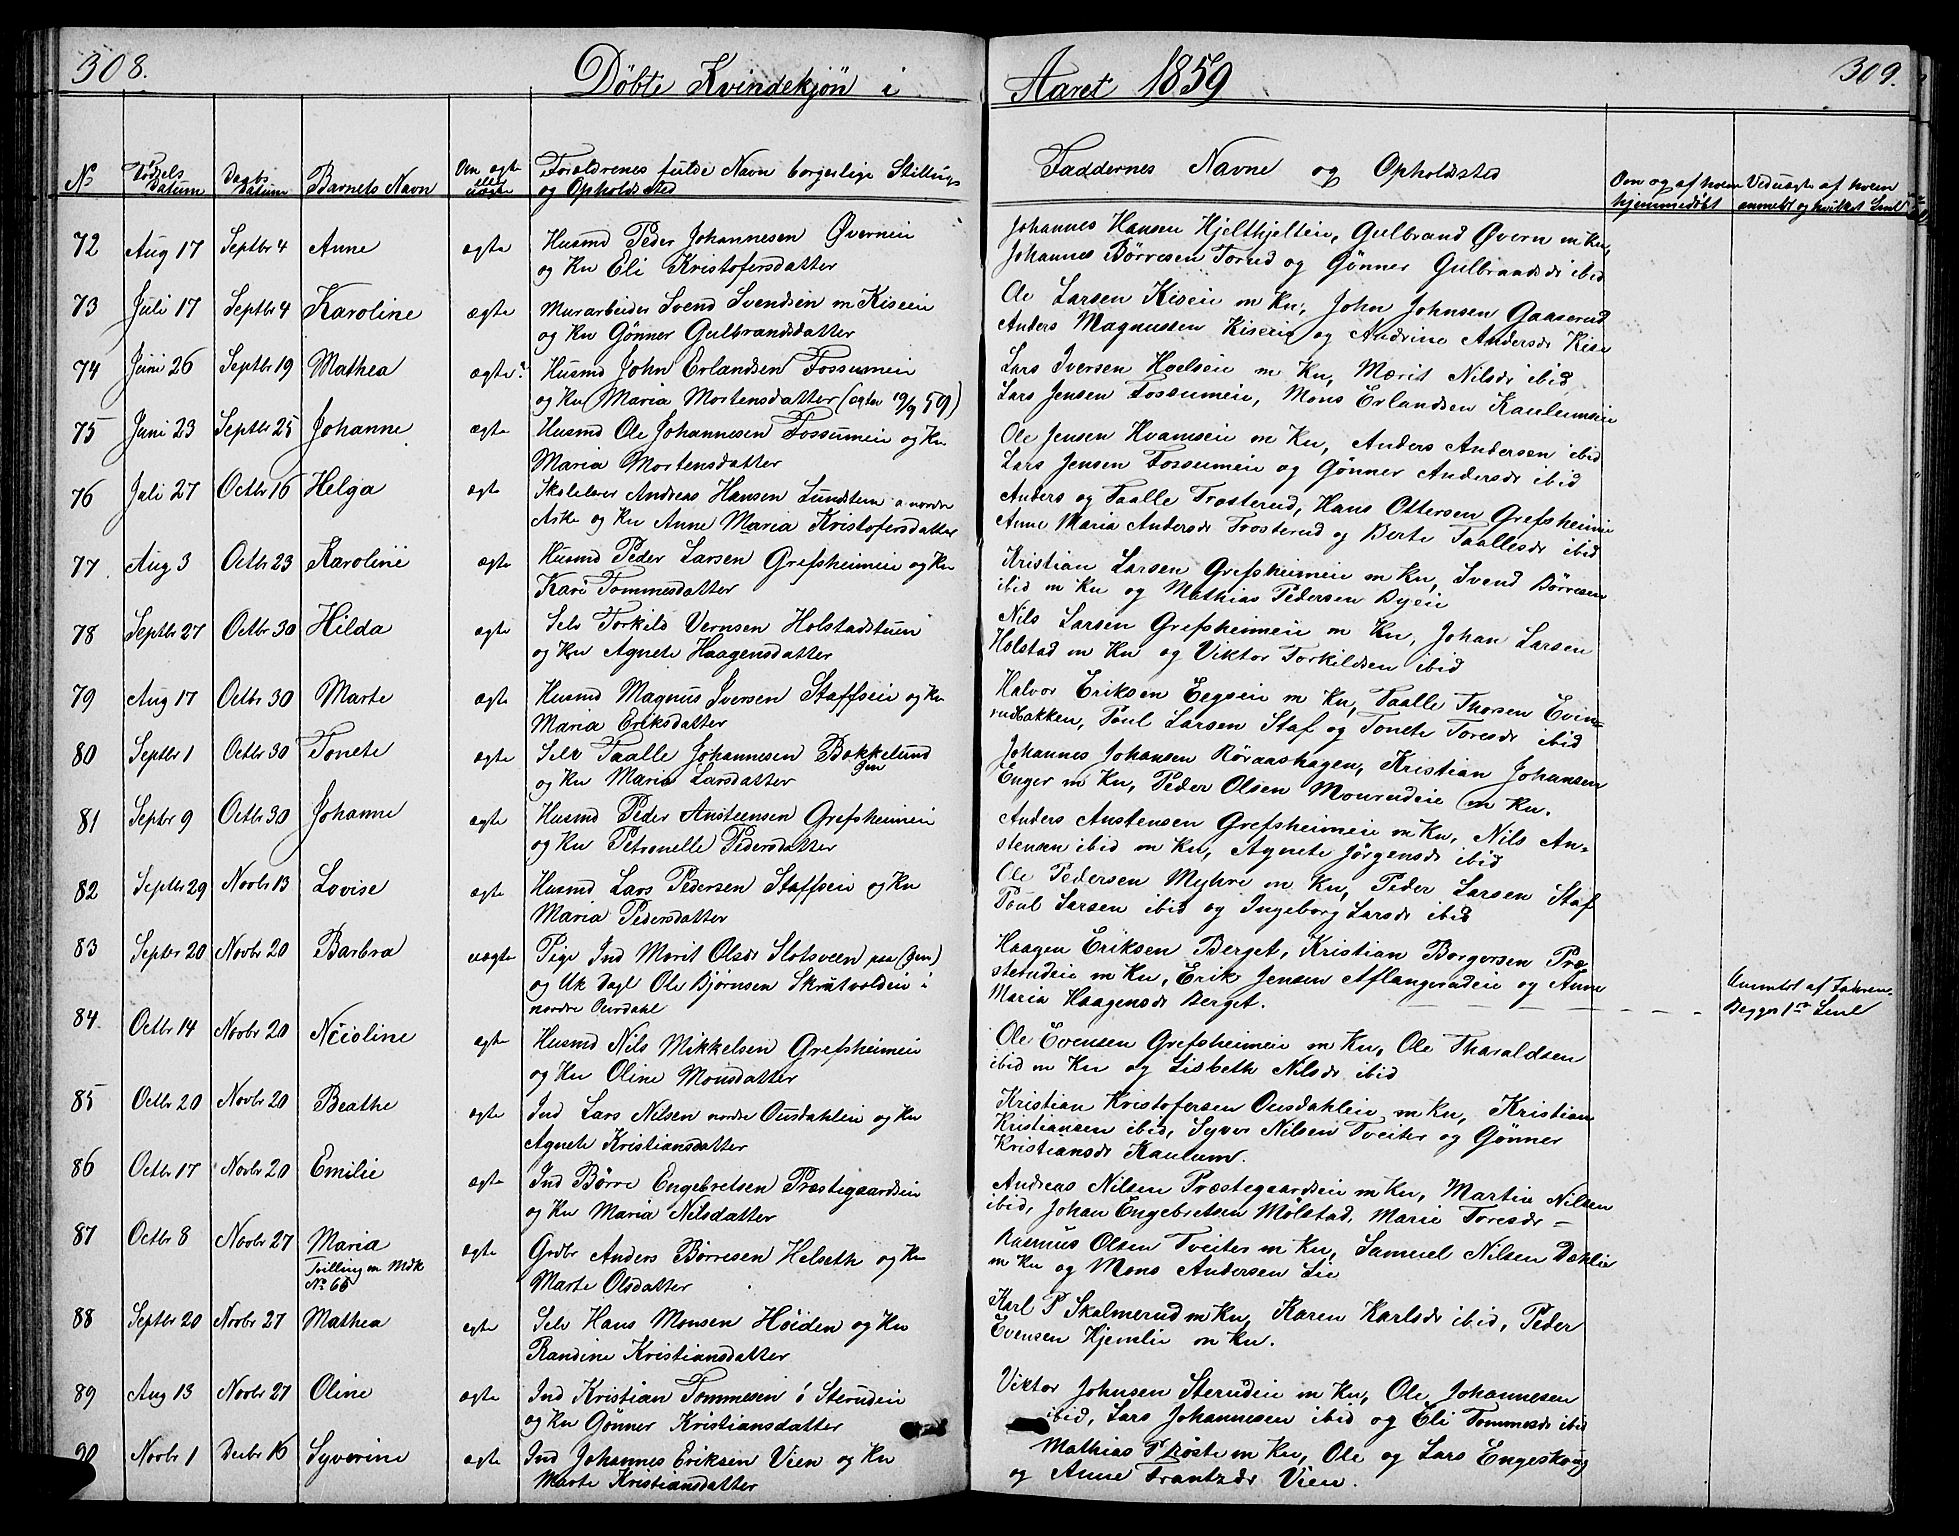 308.
Døbte Kvindekjøn i
Aaret 1859
309.
No
Fødsels Datum
Daabs Datum
Barnets Navn
Om ægte eller uægte
Forældrenes fulde Navn borgerlige Stilling
og Opholdssted
Faddernes Navne og Opholdsted
Om og af hvem
hjemmedøbt
Ved uægte af hvem
anmeldt og hvilket Leml
72 Aug 17 Septbr 4 Anne ægte Husmd Peder Johannesen Øverneie
og Kn Eli Kristofersdatter
Johannes Hansen Hjelthjelteie, Gulbrand Øvern m Kn,
Johannes Børresen Torud og Gønner Gulbrandsdr ibid
73 Juli 17 Septbr 4 Karoline ægte Murarbeider Svend Svendsen m Kiseeie
og Kn Gønner Gulbrandsdatter
Ole Larsen Kiseie m Kn, John Johnsen Gaaserud
Anders Magnussen Kiseeie og Andrine Andersdr Kise
74 Juni 26 Septbr 19 Mathea ægte? Husmd John Erlandsen Fossumeie
og Kn Maria Mortensdatter (ægtev 19/9 59)
Lars Iversen Hoelseie m Kn, Marit Nilsdr ibid,
Lars Jensen Fossumeie, Mons Erlandsen Kaulumseie
75 Juni 23 Septbr 25 Johanne ægte Husmd Ole Johannesen Fossumeie og Kn
Maria Mortensdatter
Ole Jensen Hvamseie m Kn, Anders Andersen ibid
Lars Jensen Fossumeie og Gønner Andersdr ibid
76 Juli 27 Octbr 16 Helga ægte Skolelærer Andreas Hansen Lundstein a nordre
Aske og Kn Anne Maria Kristofersdatter
Anders og Taalle Frosterud, Hans Ottersen Grefsheimeie
Anne Maria Andersdr Frosterud og Berte Taallesdr ibid
77. Aug 3 Octbr 23 Karoline ægte Husmd Peder Larsen Grefsheimeie og Kn
Kari Tommesdatter
Kristian Larsen Grefsheimeie m Kn, Svend Børresen
ibid m Kn og Mathias Pedersen Byeie
78 Septbr 27 Octbr 30 Hilda ægte Selv Torkild Vernsen Holstadstuen
og Kn Agnete Haagensdatter
Nils Larsen Grefsheimeie m Kn, Johan Larsen
Holstad m Kn og Viktor Torkildsen ibid
79 Aug 17 Octbr 30 Marte ægte Husmd Magnus Iversen Staffseie og Kn
Maria Eriksdatter
Halvor Eriksen Eegseie m Kn, Taalle Thorsen Evin=
rudbakken, Poul Larsen Staf og Tonete Toresdr ibid
80 Septbr 1 Octbr 30 Tonete ægte Selv Taalle Johannesen Bækkelund
og Kn Maria Larsdatter
Johannes Johansen Røraashagen, Kristian Johansen
Enger m Kn, Peder Olsen Mourudeie m Kn.
81 Septbr 9 Octbr 30 Johanne ægte Husmd Peder Anstensen Grefsheimeie
og Kn Petronelle Pedersdatter
Anders Anstensen Grefsheimeie m Kn, Nils An=
stensen ibid m Kn, Agnete Jørgensdr ibid
82 Septbr 29 Novbr 13 Lovise ægte Husmd Lars Pedersen Staffseie og Kn
Maria Pedersdatter
Ole Pedersen Myhre m Kn, Peder Larsen Staf
Poul Larsen ibid og Ingeborg Larsdr ibid
83 Septbr 20 Novbr 20 Barbra uægte Pige Ind Marit Olsdr Slotsveen paa (gm)
og Uk Dagl Ole Bjørnsen Skrutvoldeie i
nordre Ourdahl
Haagen Eriksen Berget, Kristian Borgersen Præ
sterudeie m Kn, Erik Jensen Aflangerudeie og Anne
Maria Haagensdr Berget.
Anmeldt af Faderen.
Begges 1ste Leml
84. Octbr 14 Novbr 20 Nicoline ægte Husmd Nils Mikkelsen Grefsheimeie
og Kn Oline Monsdatter
Ole Evensen Grefsheimeie m Kn, Ole Tharaldsen
ibid m Kn og Lisbeth Nilsdr ibid
85 Octbr 20 Novbr 20 Beathe ægte Ind Lars Nilsen nordre Ousdahleie og Kn
Agnete Kristiansdatter
Kristian Kristofersen Ousdahleie m Kn, Kristian
Kristiansen ibid, Syver Nilsen Tveiter og Gønner
Kristiansdr Kaulum.
86 Octbr 17 Novbr 20 Emilie ægte Ind Børre Engebretsen Præstegaardseie
og Kn Maria Nilsdatter
Andreas Nilsen Præstegaardseie m Kn, Martin Nilsen
ibid, Johan Engebretsen Mølstad, Marie Toresdr —
87 Octbr 8 Novbr 27 Maria
Tvilling m Mdk
No 65
ægte Grdbr Anders Børresen Helseth og Kn
Marte Olsdatter
Rasmus Olsen Tveiter m Kn, Samuel Nilsen Dæhlie
m Kn og Mons Andersen Lie
88 Septbr 20 Novbr 27 Mathea ægte Selv Hans Monsen Høiden og Kn
Randine Kristiansdatter
Karl P Skalmerud m Kn, Karen Karlsdr ibid, Peder
Evensen Hjemlie m Kn.
89 Aug 13 Novbr 27 Oline ægte Ind Kristian Tommesen i Sterudeie
og Kn Gønner Kristiansdatter
Viktor Johnsen Sterudeie m Kn, Ole Johannesen
ibid, Lars Johannesen ibid og Eli Tommesdr ibid
90 Novbr 1 Decbr 16 Syverine ægte Ind Johannes Eriksen Vien og Kn
Marte Kristiansdatter
Mathias P Røste m Kn, Ole og Lars Engeskoug
og Anne Frantzdr Vien.